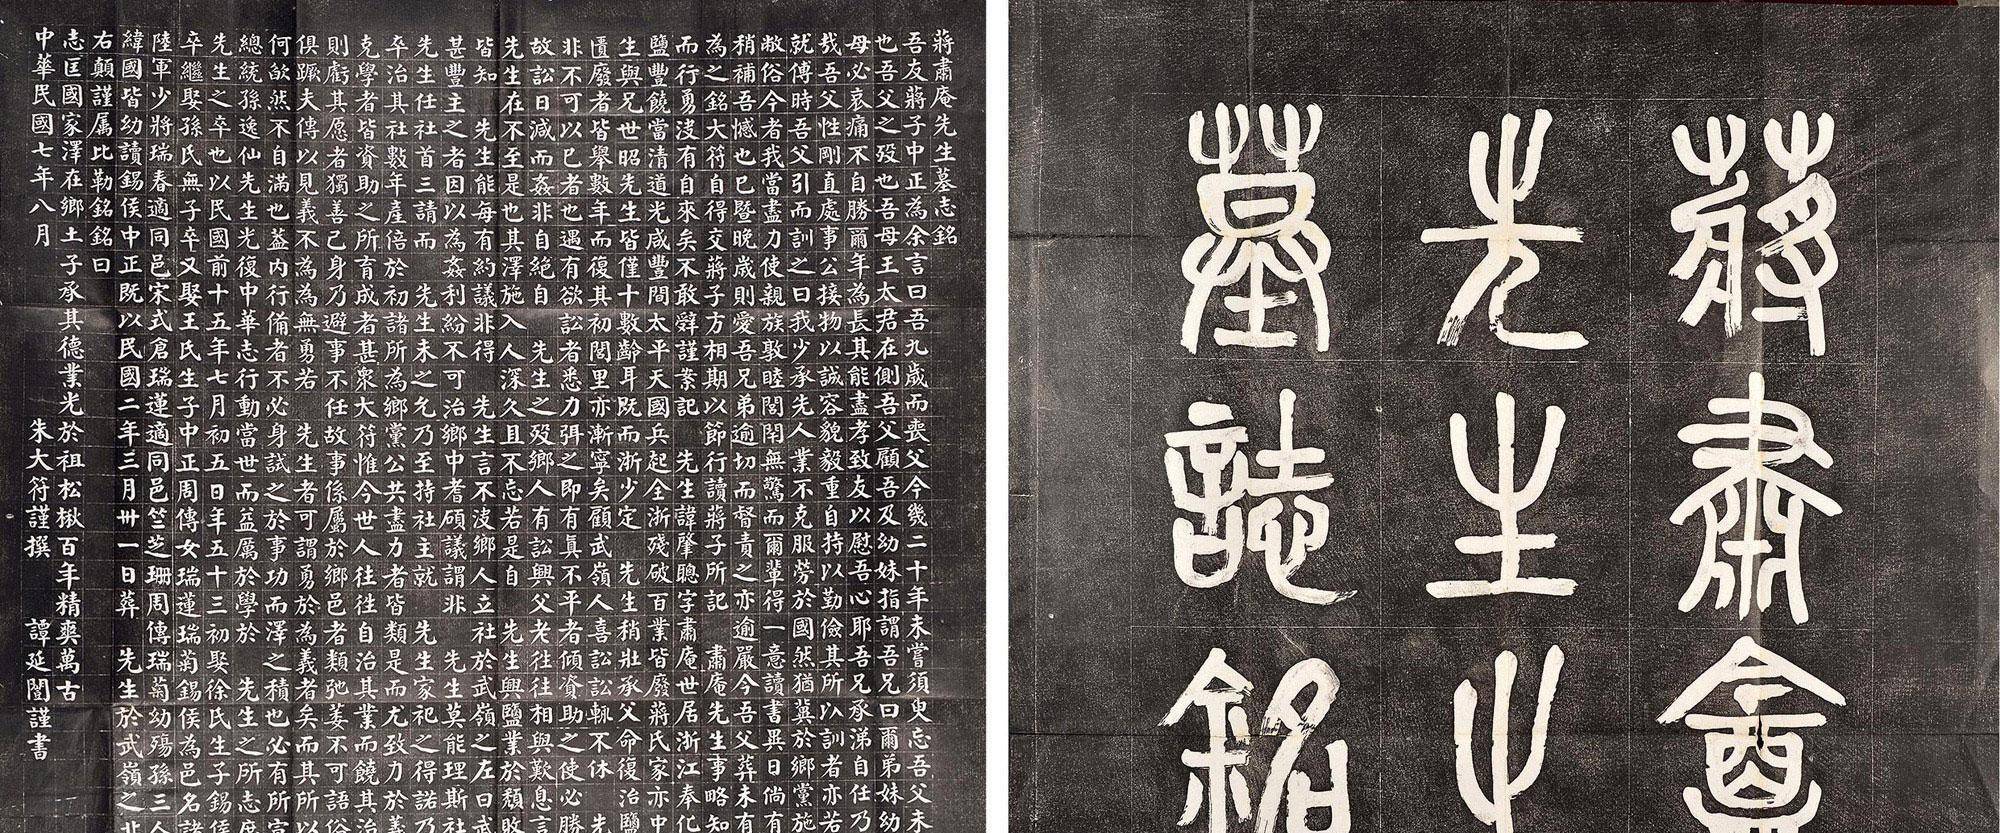 蔣肅庵先生墓志銘
吾友蔣子中正為余言曰吾九歲而喪父今幾二十年未嘗須臾忘吾父未
也吾父之歿也吾母王太君在側吾父顧吾及幼妹指謂吾兄曰爾弟妹幼
母必哀痛不自勝爾年為長其能盡孝致友以慰吾心耶吾兄承涕自任乃
哉吾父性剛直處事公接物以誠容貌毅重自持以勤儉其所以訓者亦若
就傅時吾父引而訓之曰我少承先人業不克服勞於國然猶冀於鄉黨施
敝俗今者我當盡力使親族敦睦閭閈無驚而爾輩得一意讀書異日倘有
稍補吾憾也已暨晚歲則愛吾兄弟逾切而督責之亦逾嚴今吾父葬未有
為之銘大符自得交蔣子方相期以節行讀蔣子所記 肅庵先生事略知
而行勇洊有自來矣不敢辭謹案記 先生諱肇聰字肅庵世居浙江奉化
鹽豐饒當清道光咸豐間太平天國兵起全浙殘破百業皆廢蔣氏家亦中
生與兄世昭先生皆僅十數齡耳既而浙少定 先生稍壯承父命復治鹽
匱廢者皆舉數年而復其初閭里亦漸寧矣顧武嶺人喜訟訟輒不休 先
非不可以已者也遇有欲訟者悉力弭之即有真不平者傾資助之使必勝
故訟日減而姦非自絕自 先生之歿鄉人有訟興父老往往相與歎息言
先生在不至是也其澤施入人深久且不忘若是自 先生興鹽業於頹敗
皆知 先生能每有約議非得 先生言不洊鄉人立社於武嶺之左曰武
甚豐主之者因以為姦利紛不可治鄉中耆碩議謂非 先生莫能理斯社
先生任社首三請而 先生未之允乃至持社主就 先生家祀之得諾乃
卒治其社數年產倍於初諸所為鄉黨公共盡力者皆類是而尤致力於義
克學者皆資助之所育成者甚衆大符惟今世人往往自治其業而饒其治
則虧其愿者獨善己身乃避事不任故事係屬於鄉邑者類弛萎不可語俗
俱蹶夫傳以見義不為為無勇若 先生者可謂勇於為義者矣而其所以
何欿然不自滿也蓋內行備者不必身試之於事功而澤之積也必有所宣
總統孫逸仙先生光復中華志行動當世而益厲於學於 先生之所志庶
先生之卒也以民國前十五年七月初五日年五十三初娶徐氏生子錫侯
卒繼娶孫氏無子卒又娶王氏生子中正周傳女瑞蓮瑞菊錫侯為邑名諸
陸軍少將瑞春適同邑宋式倉瑞蓮適同邑竺芝珊周傳瑞菊幼殤孫三人
緯國皆幼讀錫侯中正既以民國二年三月卅一日葬 先生於武嶺之北
右顛謹屬比勒銘銘曰
志匡國家澤在鄉土子承其德業光於祖松楸百年精爽萬古
中華民國七年八月 朱大符謹撰 譚延闓謹書
蔣肅盦
先生之
墓誌銘